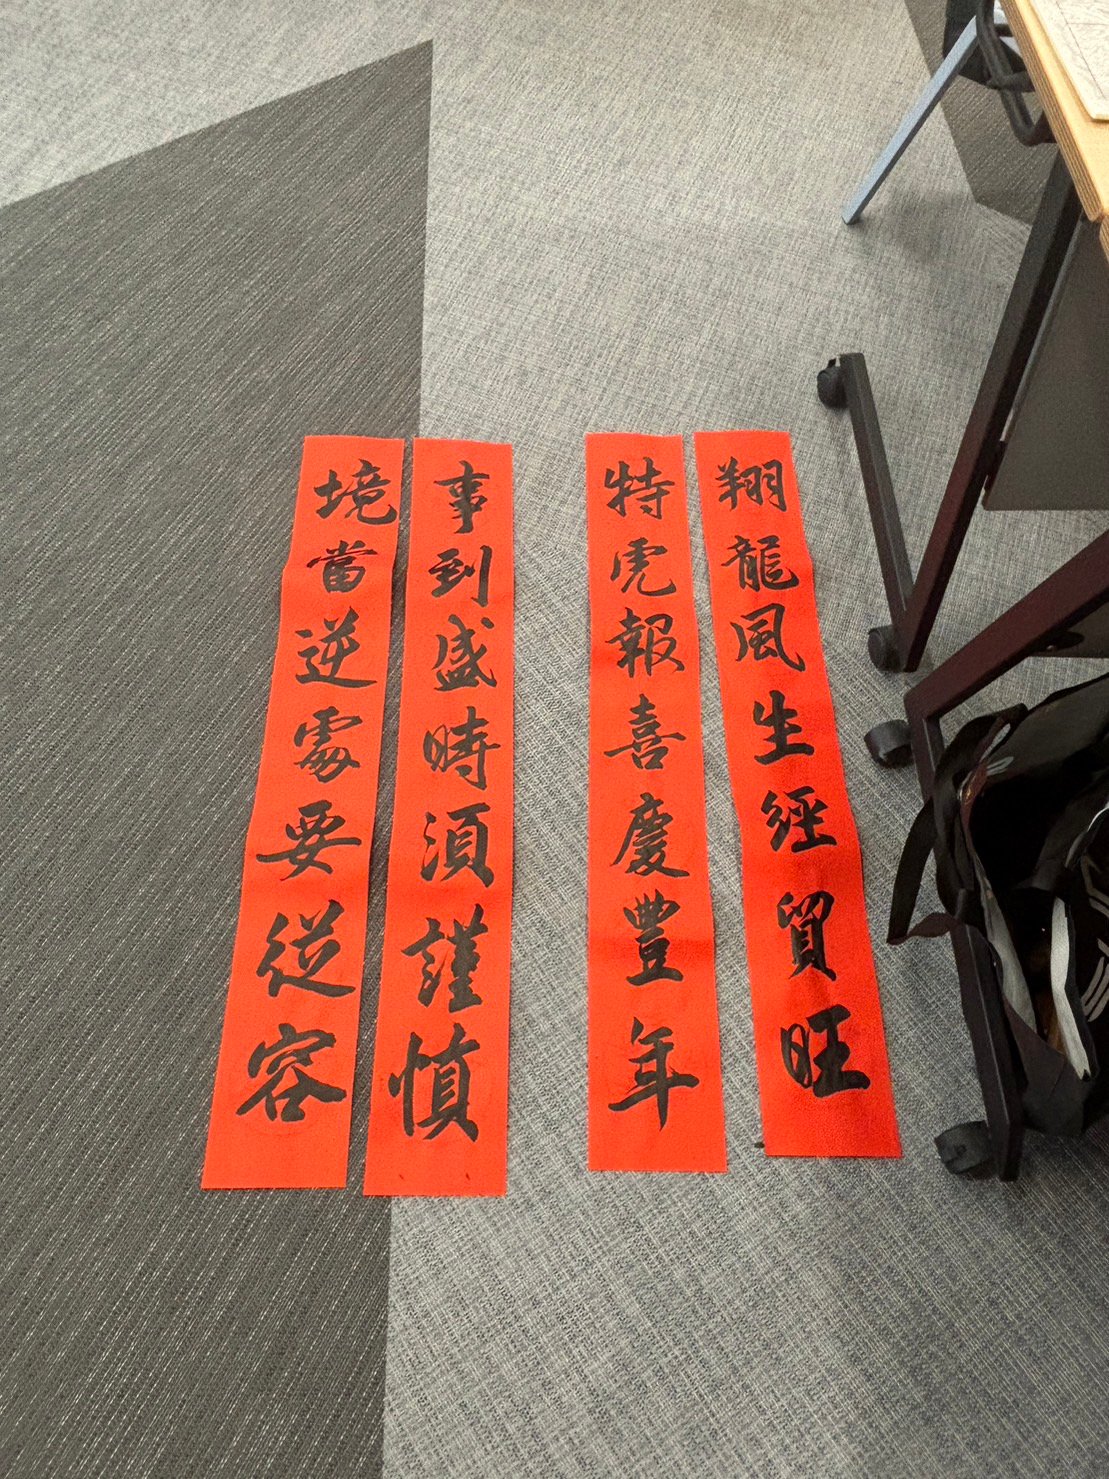 翔龍風生經貿旺
特虎報喜慶豐年
事到盛時須謹慎
境當逆處要從容